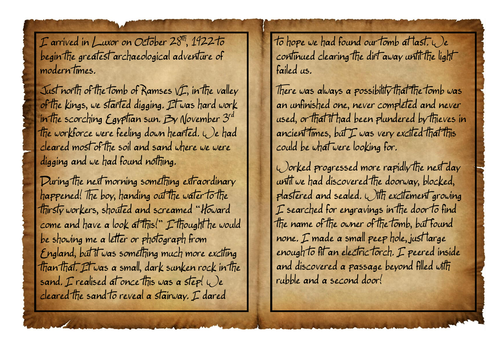 I arrived in Luxor on October 28th, 1922 to
begin the greatest archaeological adventure of
modern times.
Just north of the tomb of Ramses VI, in the valley
of the kings, we started digging. It was hard work
in the scorching Egyptian sun. By November 3rd
the workforce were feeling down hearted. We had
cleared most of the soil and sand where we were
digging and we had found nothing.
During the next morning something extraordinary
happened! The boy, handing out the water to the
thirsty workers, shouted and screamed "Howard
come and have a look at this!" I thought he would
be showing me a letter or photograph from
England, but it was something much more exciting
than that. It was a small, dark sunken rock in the
sand. I realised at once this was a step! We
cleared the sand to reveal a stairway. I dared
to hope we had found our tomb at last. We
continued clearing the dirt away until the light
failed us.
There was always a possibility that the tomb was
an unfinished one, never completed and never
used, or that it had been plundered by thieves in
ancient times, but I was very excited that this
could be what were looking for.
Worked progressed more rapidly the next day
until we had discovered the doorway, blocked,
plastered and sealed. With excitement growing
I searched for engravings in the door to find
the name of the owner of the tomb, but found
none. I made a small peep hole, just large
enough to fit an electric torch. I peered inside
and discovered a passage beyond filled with
rubble and a second door!